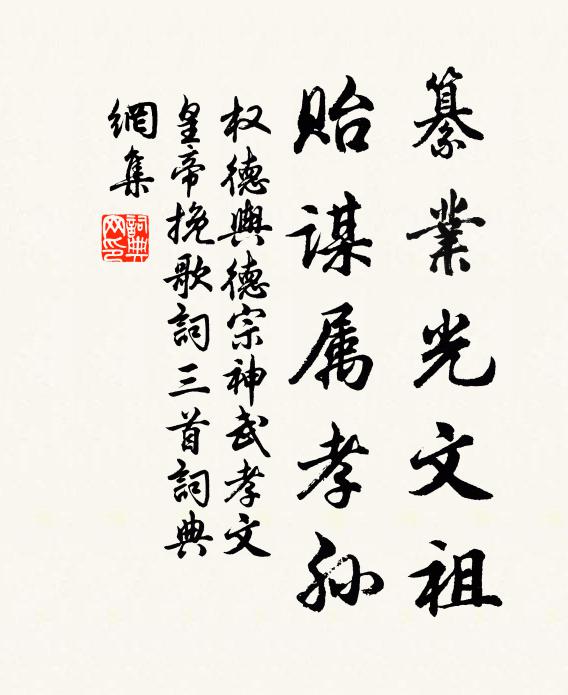 纂業光文祖
貽謀属孝孙
权德輿德宗神武孝文
皇帝挽歌詞三首詞典
網集
詞典
网印